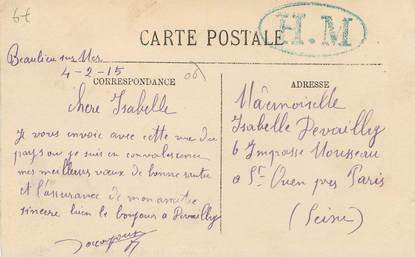 6€
CARTE POSTALE
H.M
Beaulieu sur Mer
4-2-15
CORRESPONDANCE
ADRESSE
chere Isabelle
Je vous envoie avec cette vue du
pays ou je suis en convalescence
mes meilleurs vœux de bonne santé
et l'assurance de mon amitié
sincère bien le bonjour à Devailly
Mademoiselle
Isabelle Devailly
6 Impasse Rousseau
a St Ouen pres Paris
(Seine)